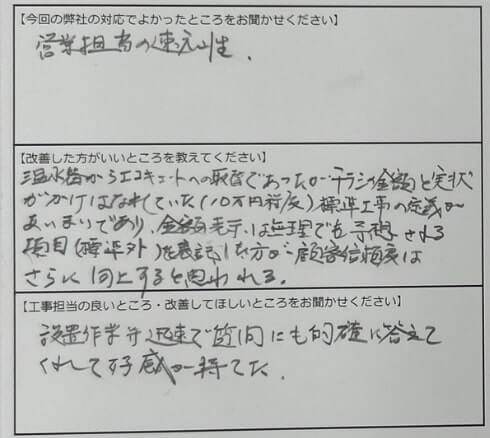 【今回の弊社の対応でよかったところをお聞かせください】
営業担当の速応性.
【改善した方がいいところを教えてください】
温水器からエコキュートへの取替であったがチラシ金額と実状
がかけはなれていた(10万円程度)標準工事の定義が
あいまいであり、金額表示は無理でも予想される
項目(標準外)を表記した方が顧客信頼度は
さらに向上すると思われる.
【工事担当の良いところ・改善してほしいところをお聞かせください】
設置作業が迅速で質問にも的確に答えて
くれて好感が持てた.